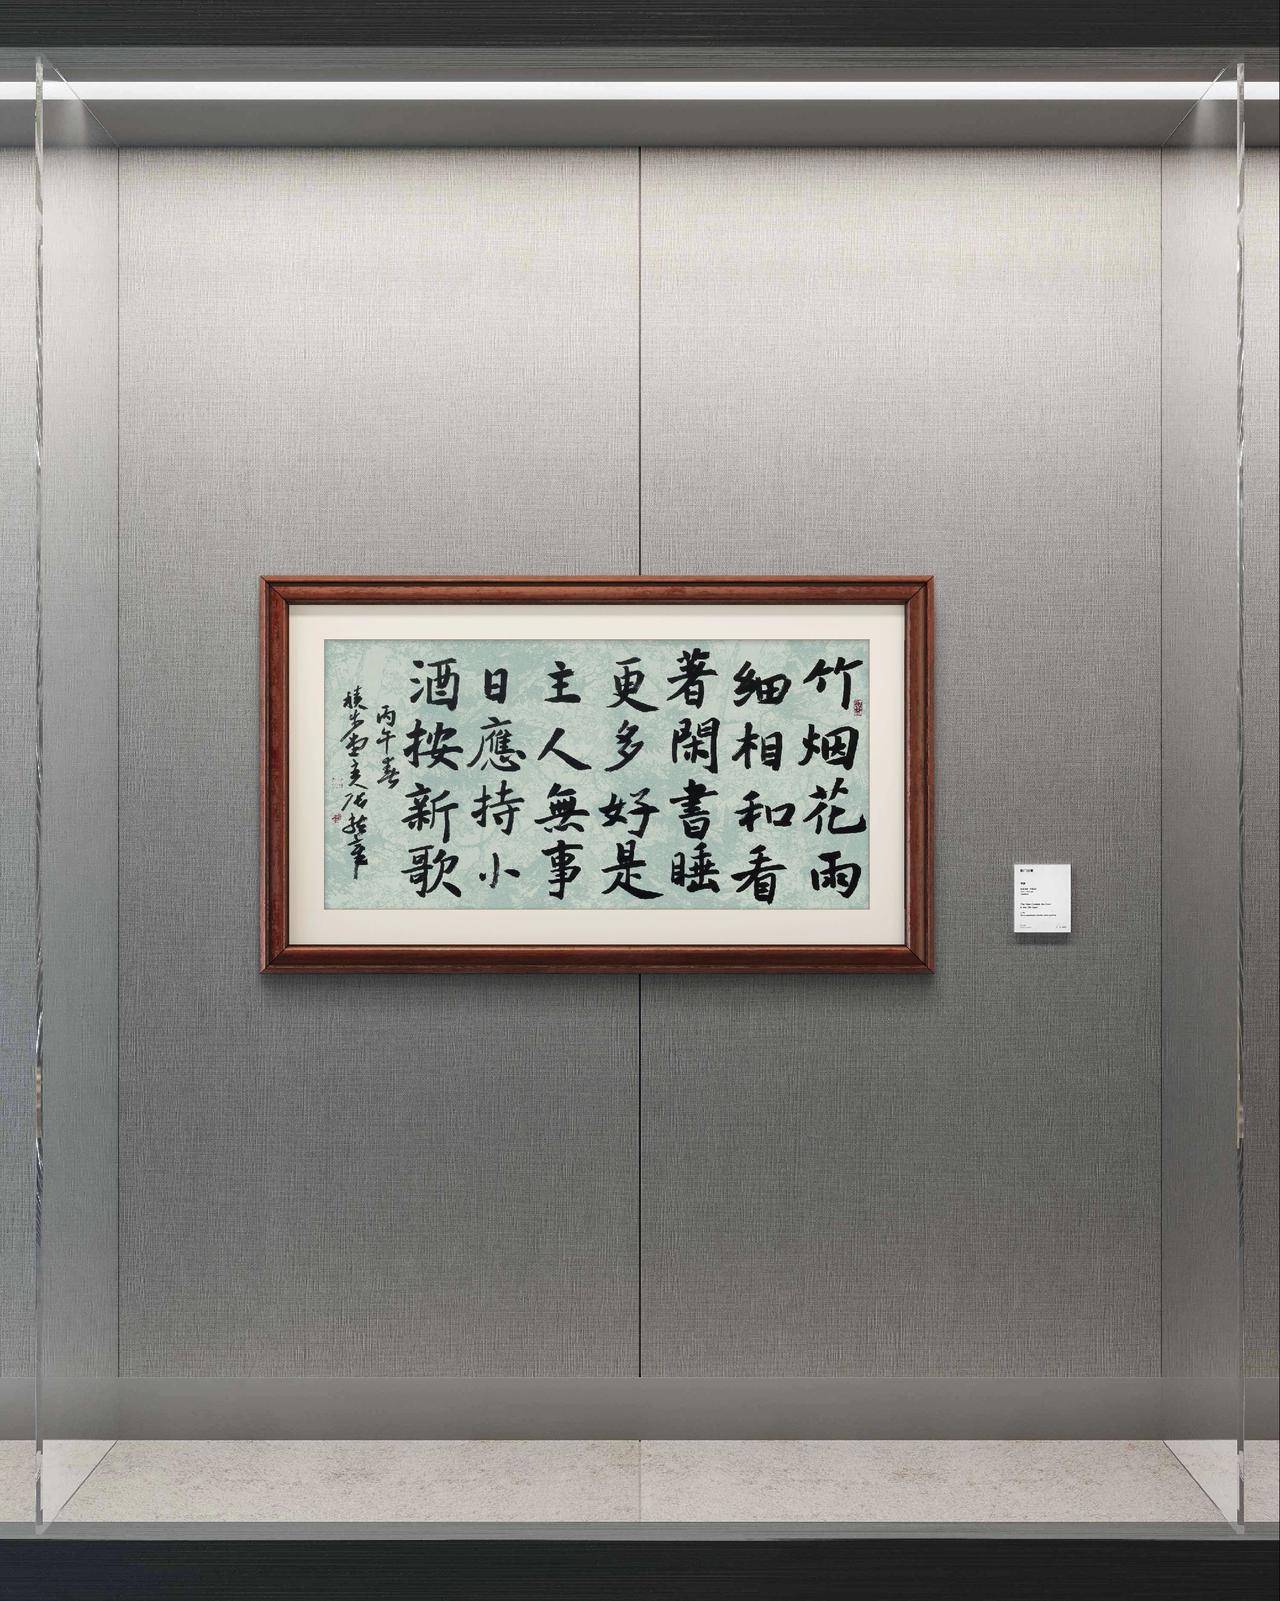 竹烟花雨
細相和看
著閑書睡
更多好是
主人無事
日應持小
酒按新歌
丙午春